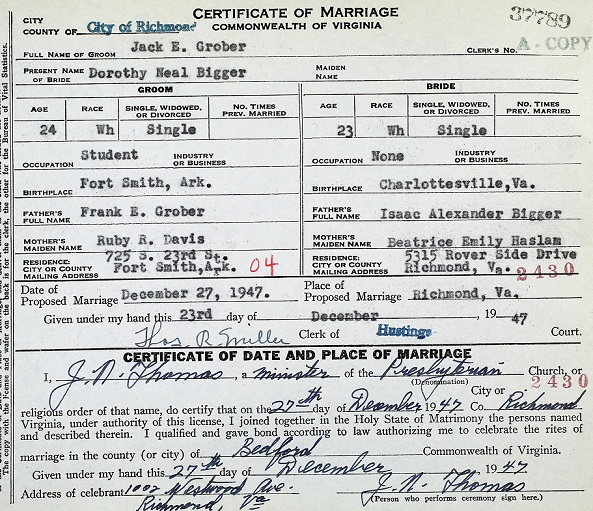 CERTIFICATE OF MARRIAGE
COMMONWEALTH OF VIRGINIA
37789
CITY
COUNTY OF City of Richmond
FULL NAME OF GROOM Jack E. Grober CLERK'S NO. A - COPY
PRESENT NAME OF BRIDE Dorothy Neal Bigger MAIDEN NAME
GROOM BRIDE
AGE RACE SINGLE, WIDOWED, OR DIVORCED NO. TIMES PREV. MARRIED AGE RACE SINGLE, WIDOWED, OR DIVORCED NO. TIMES PREV. MARRIED
24 Wh Single 23 Wh Single
OCCUPATION Student INDUSTRY OR BUSINESS OCCUPATION None INDUSTRY OR BUSINESS
BIRTHPLACE Fort Smith, Ark. BIRTHPLACE Charlottesville,Va.
FATHER'S FULL NAME Frank E. Grober FATHER'S FULL NAME Isaac Alexander Bigger
MOTHER'S MAIDEN NAME Ruby R. Davis MOTHER'S MAIDEN NAME Beatrice Emily Haslam
RESIDENCE: CITY OR COUNTY MAILING ADDRESS 725 S. 23rd St. Fort Smith,Ark. 04 RESIDENCE: CITY OR COUNTY MAILING ADDRESS 5315 Rover Side Drive Richmond, Va. 2430
Date of Proposed Marriage December 27, 1947. Place of Proposed Marriage Richmond, Va.
Given under my hand this 23rd day of December, 1947
Thos. R. Miller Clerk of Hustings Court.
CERTIFICATE OF DATE AND PLACE OF MARRIAGE
I, J. N. Thomas, a minister of the Presbyterian Church, or
(Denomination) City or 2430
religious order of that name, do certify that on the 27th day of December 1947 Co. Richmond
Virginia, under authority of this license, I joined together in the Holy State of Matrimony the persons named
and described therein. I qualified and gave bond according to law authorizing me to celebrate the rites of
marriage in the county (or city) of Bedford Commonwealth of Virginia.
Given under my hand this 27th day of December, 1947
Address of celebrant 1002 Westwood Ave. J. N. Thomas
Richmond, Va (Person who performs ceremony sign here.)
The copy with the Fermes and wafer on the back is for the clerk, the other for the Bureau of Vital Statistics.